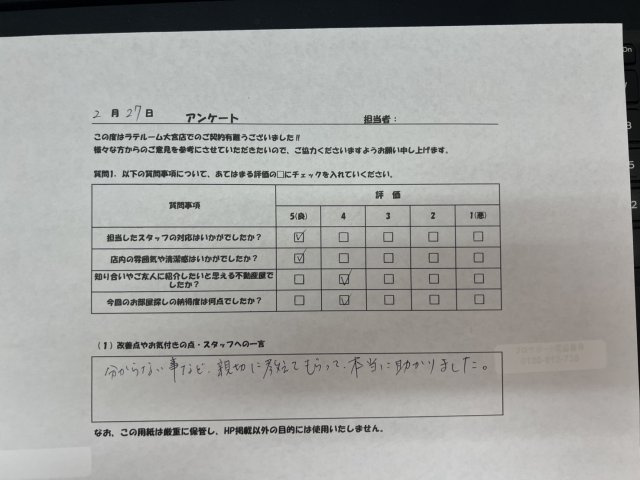 2月27日 アンケート 担当者：
この度はラテルーム大宮店でのご契約有難うございました!!
様々な方からのご意見を参考にさせていただきたいので、ご協力くださいますようお願い申し上げます。
質問1．以下の質問事項について、あてはまる評価の□にチェックを入れていください。
質問事項
評 価
5(良) 4 3 2 1(悪)
担当したスタッフの対応はいかがでしたか？
店内の雰囲気や清潔感はいかがでしたか？
知り合いやご友人に紹介したいと思える不動産屋で
したか？
今回のお部屋探しの納得度は何点でしたか？
(1) 改善点やお気付きの点・スタッフへの一言
分からない事など、親切に教えてもらって、本当に助かりました。
なお、この用紙は厳重に保管し、HP掲載以外の目的には使用いたしません。